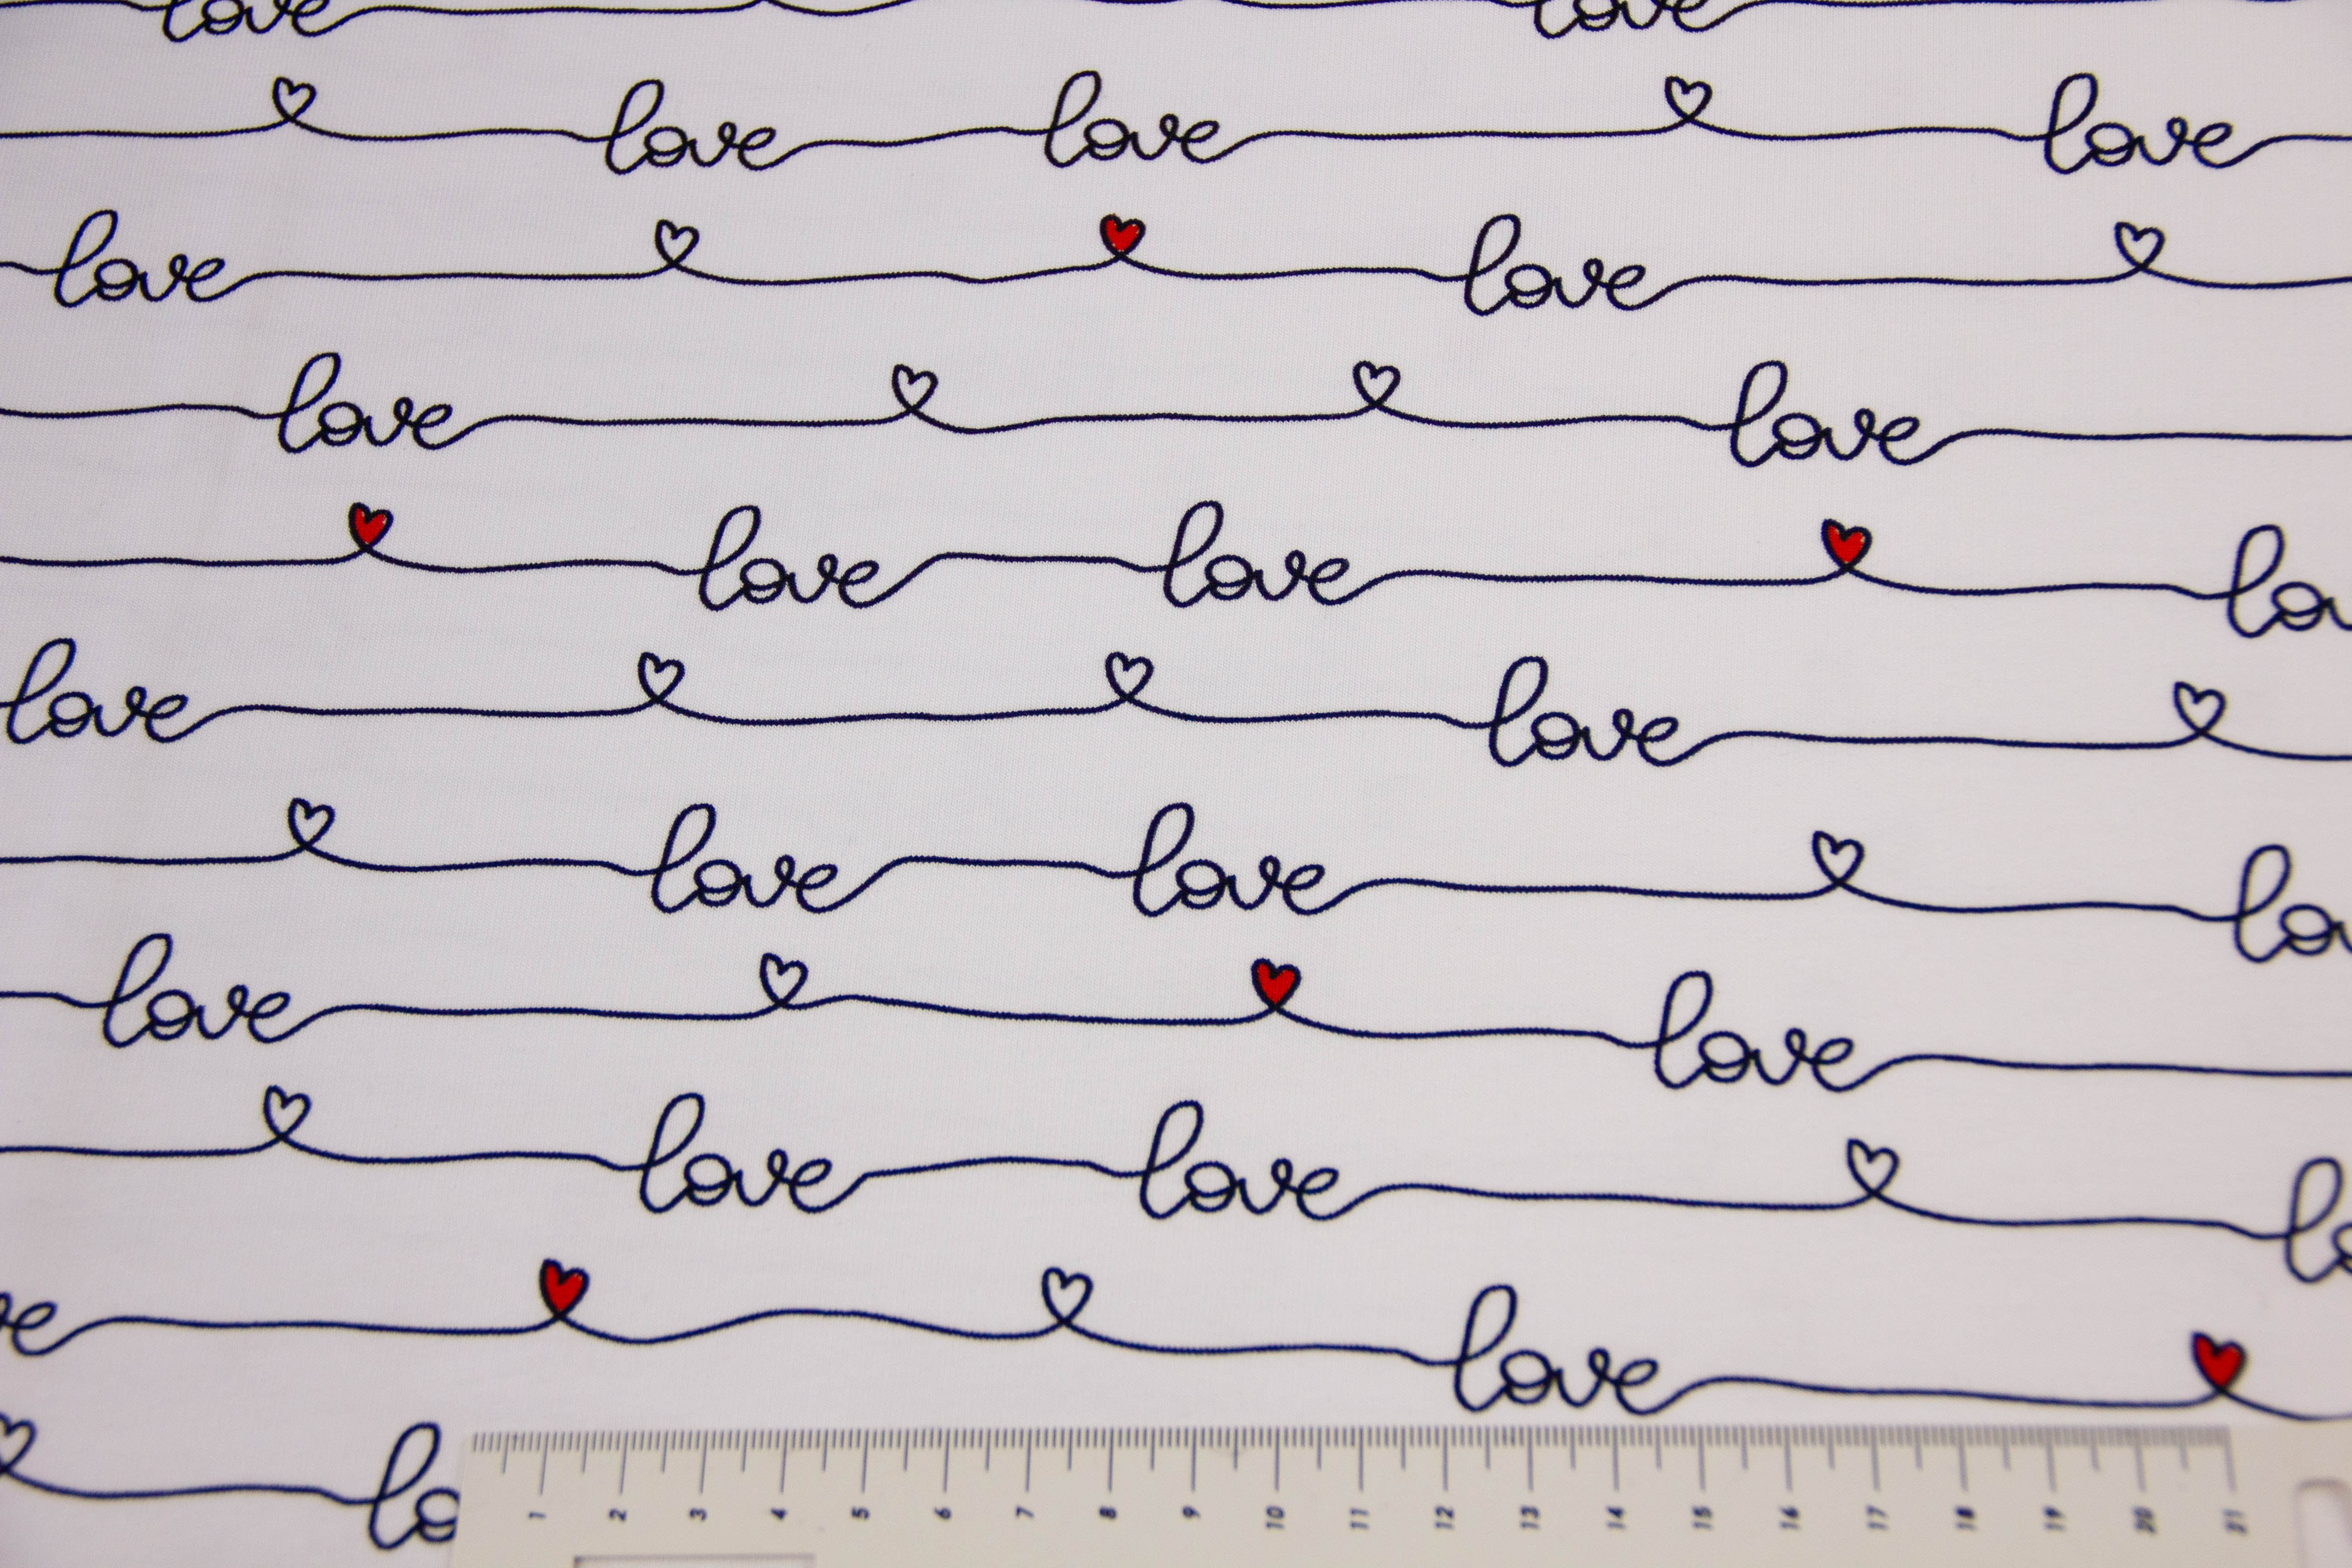 love love
love love love
love love
love love
love love lo
love love
love love lo
love love
love love lo
ve love
lo
1 2 3 4 5 6 7 8 9 10 11 12 13 14 15 16 17 18 19 20 21